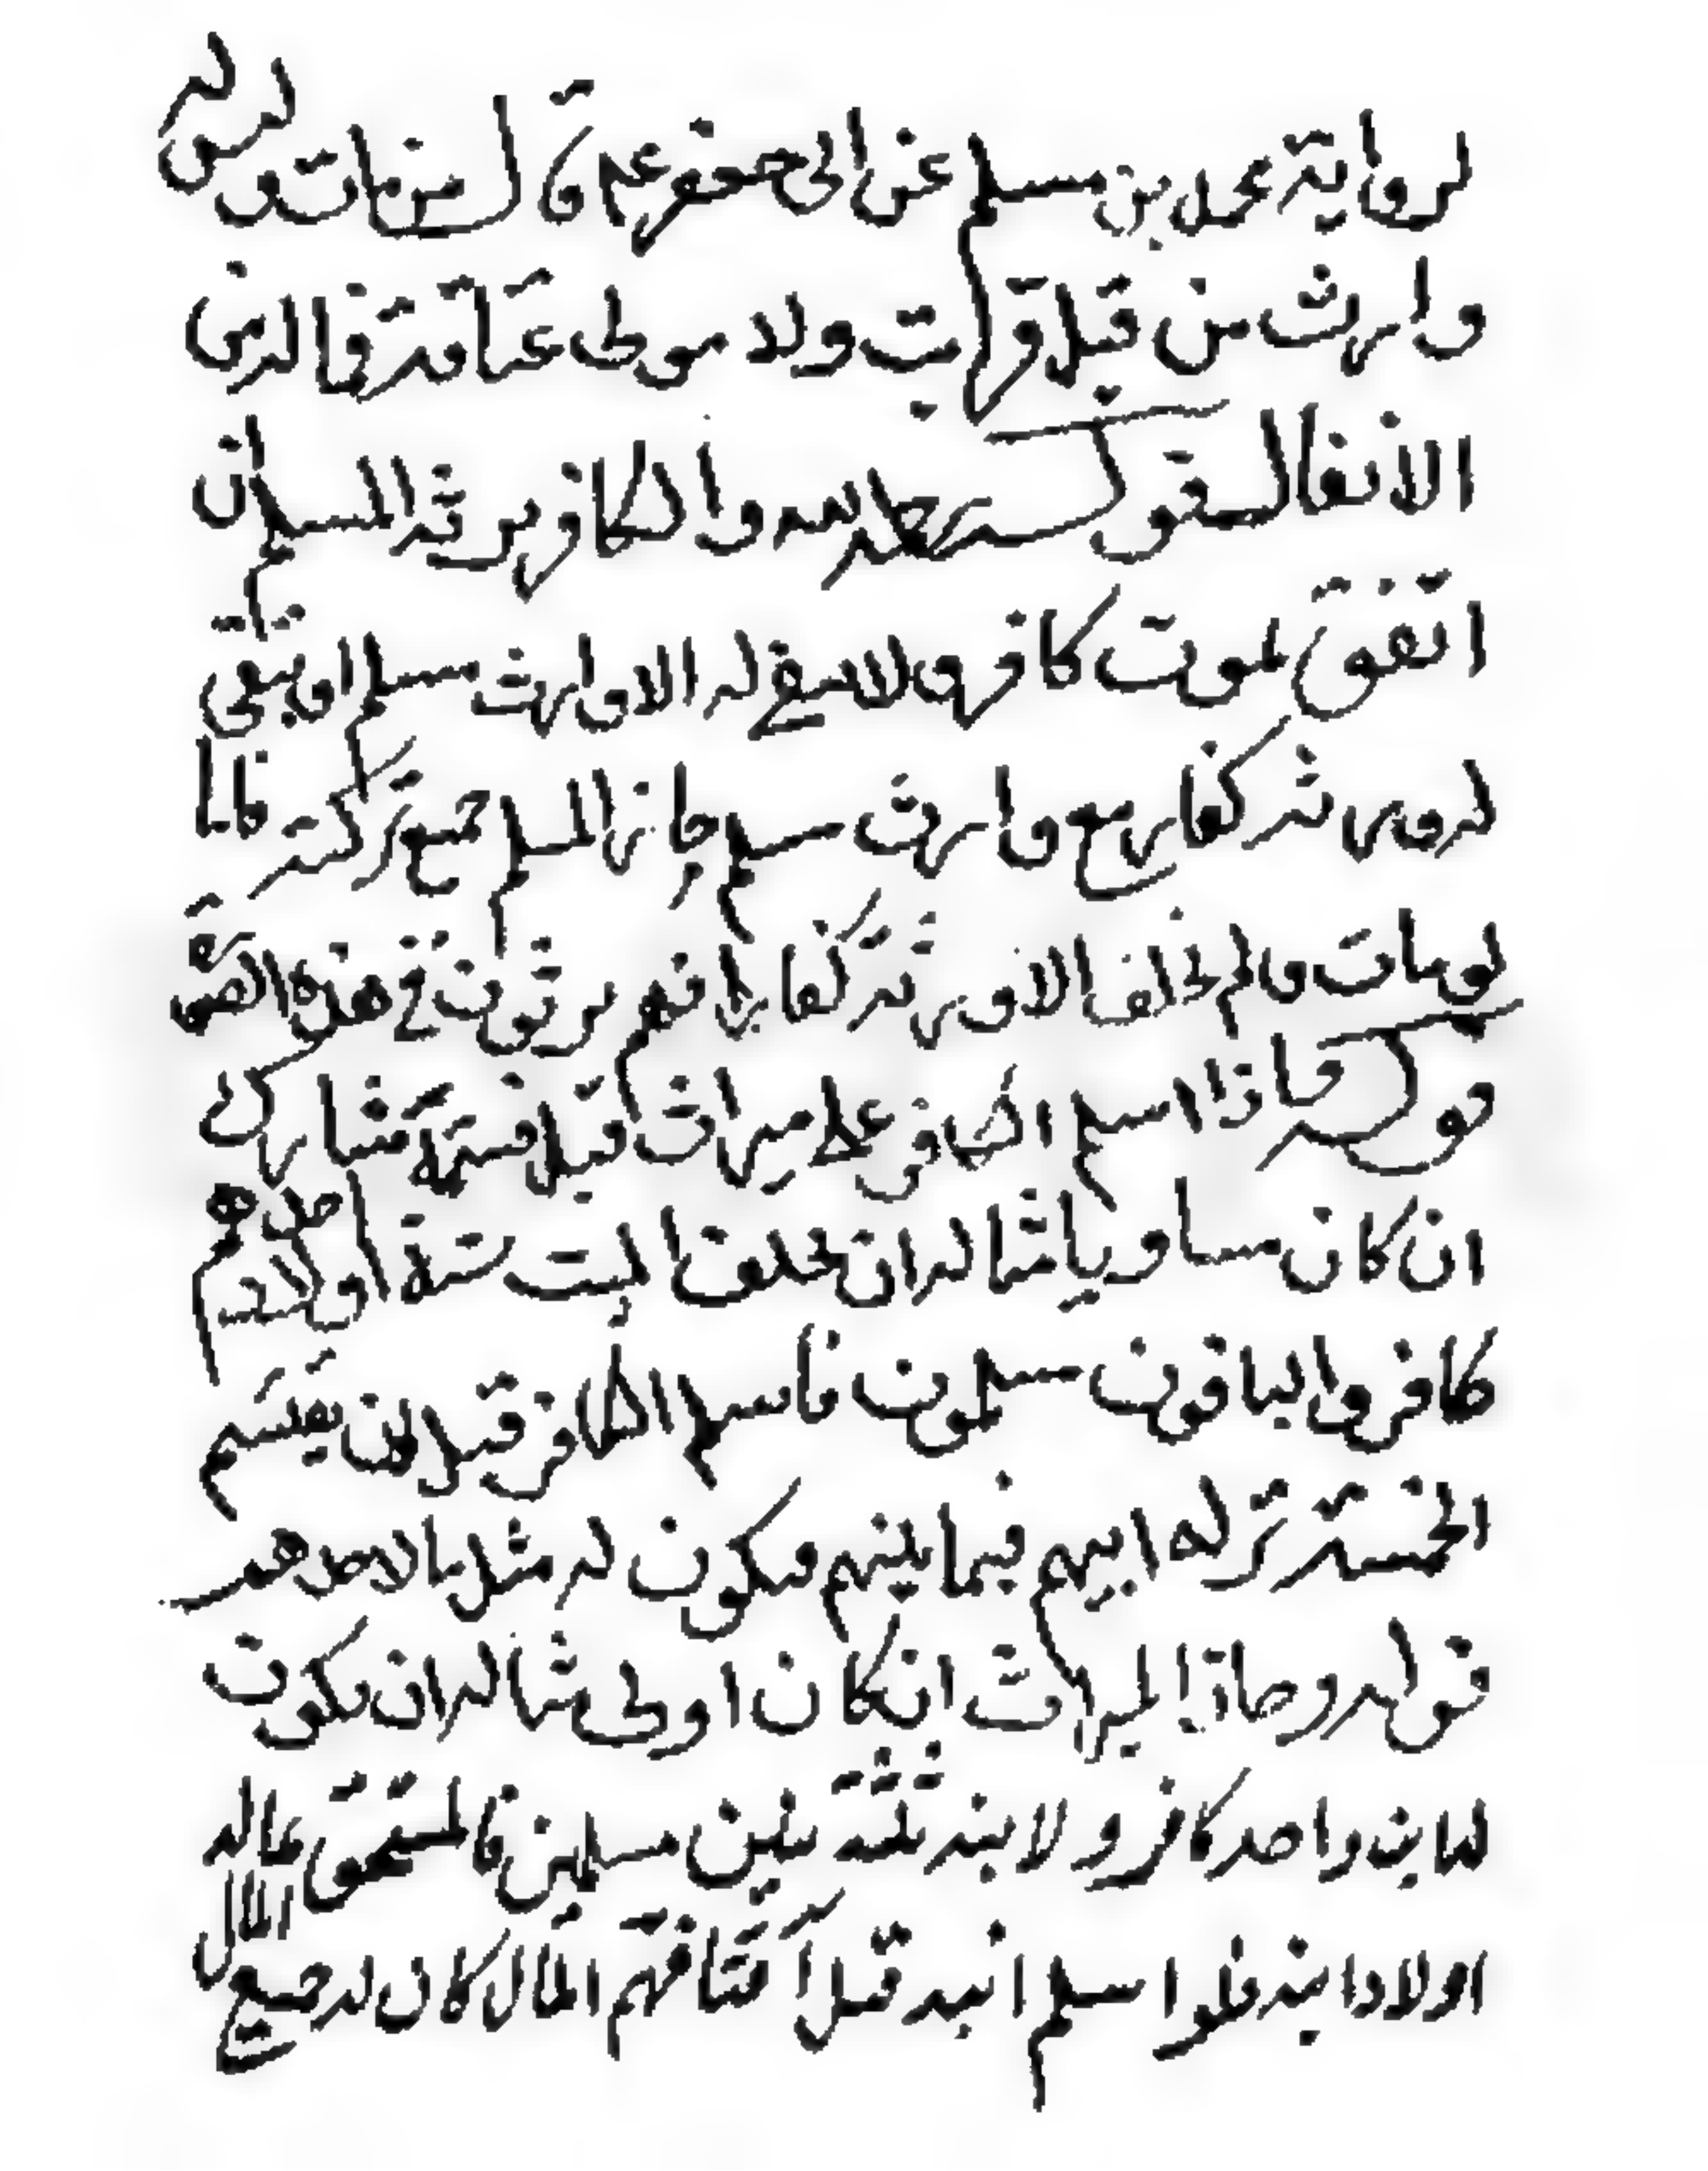 لرواية محمد بن مسلم عن ابى جعفر عم قال من مات وليس له
وارث من قبل قرابت ولا مولى عتاقة فماله من
الانفال قوله رحمه الله والكافر يرثه المسلم ان
اتفق لموت كافر ولا يبقى له الا وارث مسلم او يبقى
له ورثه كفار مع وارث مسلم جاز المسلم جميع تركته فاما
لو مات ولم يخلف الا ورثه كفار فانهم يرثون في هذه الصورة
قوله فاذا اسلم الكافر على ميراث قبل قسمة شارك
ان كان مساويا مثاله ان يخلف الميت ستة اولاد احدهم
كافر والباقون مسلمون فاسلم الكافر قبل ان يقسم
الخمسة تركه ابيهم فيما بينهم فيكون له مثل ما لاحدهم
قوله وحاز الميراث ان كان اولى مثاله ان يكون
له ابن واحد كافر ولابنه ثلثة بنين مسلمين فالمستحق لماله
اولاد ابنه فلو اسلم ابنه قبل اقتسامهم المال كان له جميع المال